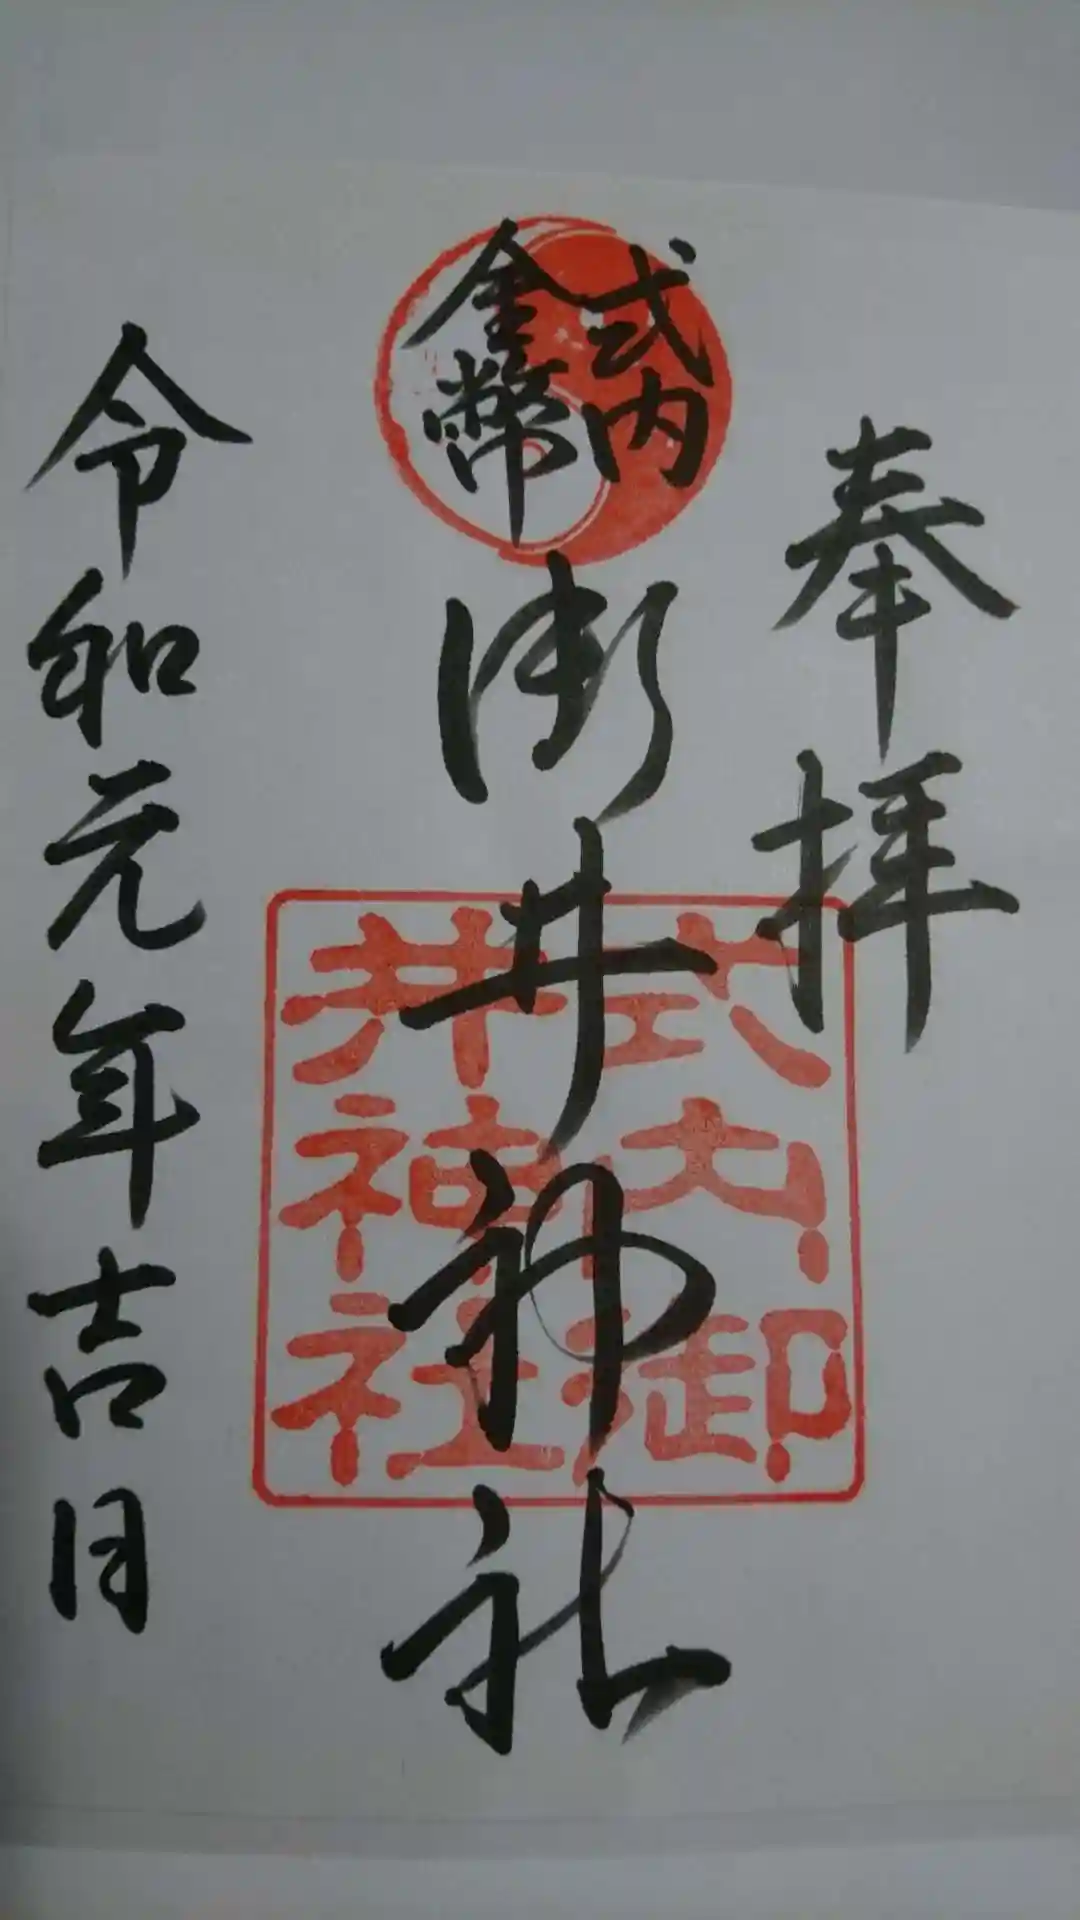 奉拝
式内
金幣
御井神社
式内御
井神社
令和元年吉月